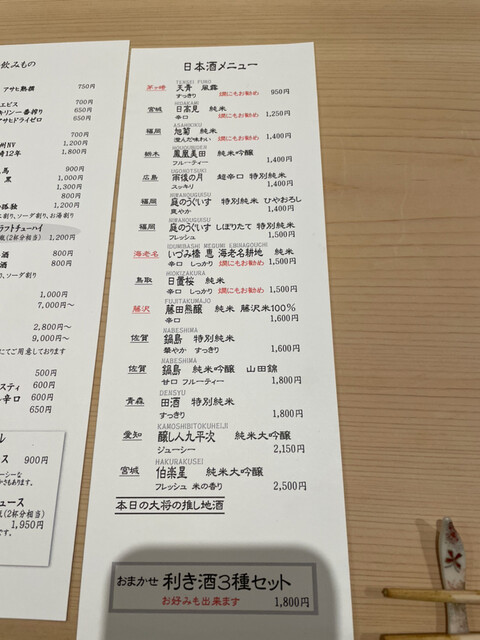 飲みもの
アサヒ熟撰 750円
エビス 700円
キリン一番搾り 650円
アサヒドライゼロ 650円
700円
州NV 1,200円
12年 1,800円
馬 900円
黒 1,000円
1,300円
800円
の孤独 1,800円
ソーダ割り、お湯割り
ラフトチューハイ
瓶(2杯分相当) 1,200円
酒 800円
酒 800円
り、ソーダ割り
1,000円
7,000円〜
2,800円〜
9,000円〜
にてご用意しております
600円
スティ 600円
ル辛口 600円
650円
ル
ス 900円
ーシーな
ュース
瓶(2杯分相当)
1,950円
です。
日本酒メニュー
TENSEI FURO
茅ヶ崎 天青 風露
すっきり 燗にもお勧め 950円
HIDAKAMI
宮城 日高見 純米
辛口 燗にもお勧め 1,250円
ASAHIKIKU
福岡 旭菊 純米
澄んだ味わい 燗にもお勧め 1,400円
HOUOUBIDEN
栃木 鳳凰美田 純米吟醸
フルーティー 1,400円
UGONOTSUKI
広島 雨後の月 超辛口 特別純米
スッキリ 1,400円
NIWANOUGUISU
福岡 庭のうぐいす 特別純米 ひやおろし
爽やか 1,400円
NIWANOUGUISU
福岡 庭のうぐいす しぼりたて 特別純米
フレッシュ 1,500円
IDUMIBASHI MEGUMI EBINAGOUCHI
海老名 いづみ橋 恵 海老名耕地 純米
辛口 しっかり 燗にもお勧め 1,500円
HIOKIZAKURA
鳥取 日置桜 純米
辛口 しっかり 燗にもお勧め 1,500円
FUJITAKUMAJO
藤沢 藤田熊醸 純米 藤沢米100%
辛口 1,600円
NABESHIMA
佐賀 鍋島 特別純米
華やか すっきり 1,600円
NABESHIMA
佐賀 鍋島 純米吟醸 山田錦
甘口 フルーティー 1,800円
DENSYU
青森 田酒 特別純米
すっきり 1,800円
KAMOSHIBITOKUHEIJI
愛知 醸し人九平次 純米大吟醸
ジューシー 2,150円
HAKURAKUSEI
宮城 伯楽星 純米大吟醸
フレッシュ 米の香り 2,500円
本日の大将の推し地酒
おまかせ 利き酒3種セット
お好みも出来ます 1,800円